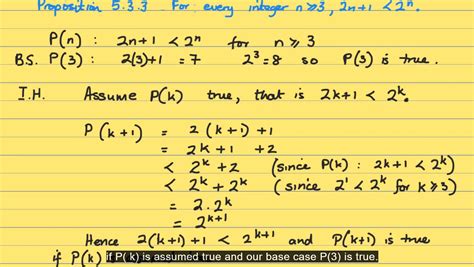 Proposition 5.3.3 For every integer n≥3, 2n+1 < 2ⁿ.
P(n) : 2n+1 < 2ⁿ for n ≥ 3
B.S. P(3) : 2(3)+1 = 7 2³=8 so P(3) is true.
I.H. Assume P(k) true, that is 2k+1 < 2ᵏ.
P(k+1) = 2(k+1)+1
= 2k+1 +2
< 2ᵏ+2 (since P(k) : 2k+1 < 2ᵏ)
< 2ᵏ+2ᵏ (since 2¹ < 2ᵏ for k≥3)
= 2.2ᵏ
= 2ᵏ⁺¹
Hence 2(k+1)+1 < 2ᵏ⁺¹ and P(k+1) is true
if P(k)
if P( k) is assumed true and our base case P(3) is true.